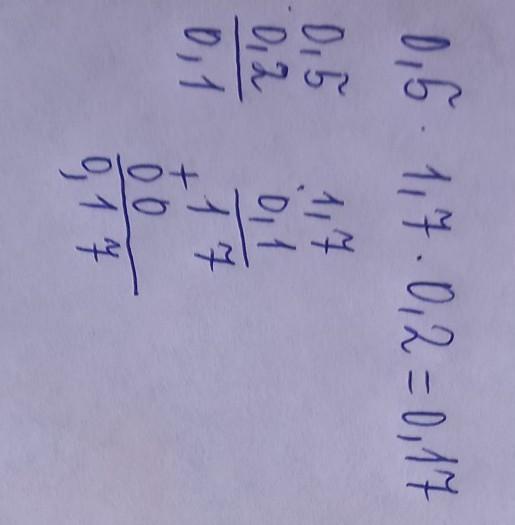 0,5 · 1,7 · 0,2 = 0,17
· 0,5
0,2
0,1
· 1,7
0,1
+ 1 7
0 0
0,1 7